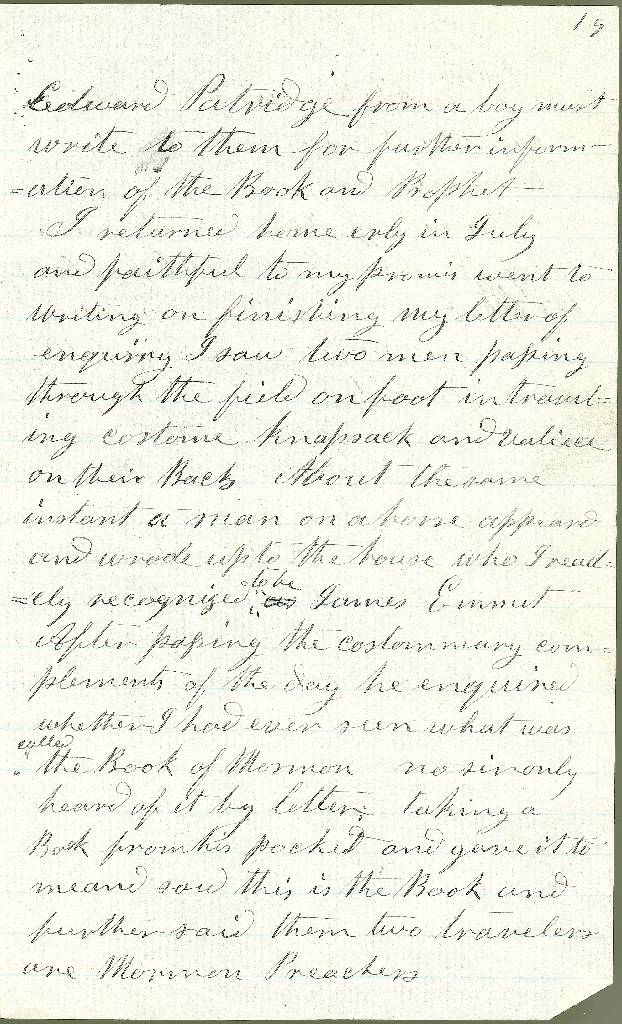 19
Edward Patridge from a boy must
write to them for further inform-
=ation of the Book and Prophet -
I returned home erly in July
and faithful to my promis went to
writing on finishing my letter of
enquiry I saw two men passing
through the field on foot in travel=
ing costome knapsack and valiece
on their Backs About the same
instant a man on a horse appeard
and wrode up to the house who I read=
=ely recognized to be as James Emmut
After passing the costommary com=
plements of the day he enquired
whether I had ever seen what was
called
the Book of Mormon no sir only
heard of it by letter; taking a
Book from his pocket and gave it to
me and said this is the Book and
further said them two travelers
are Mormon Preachers